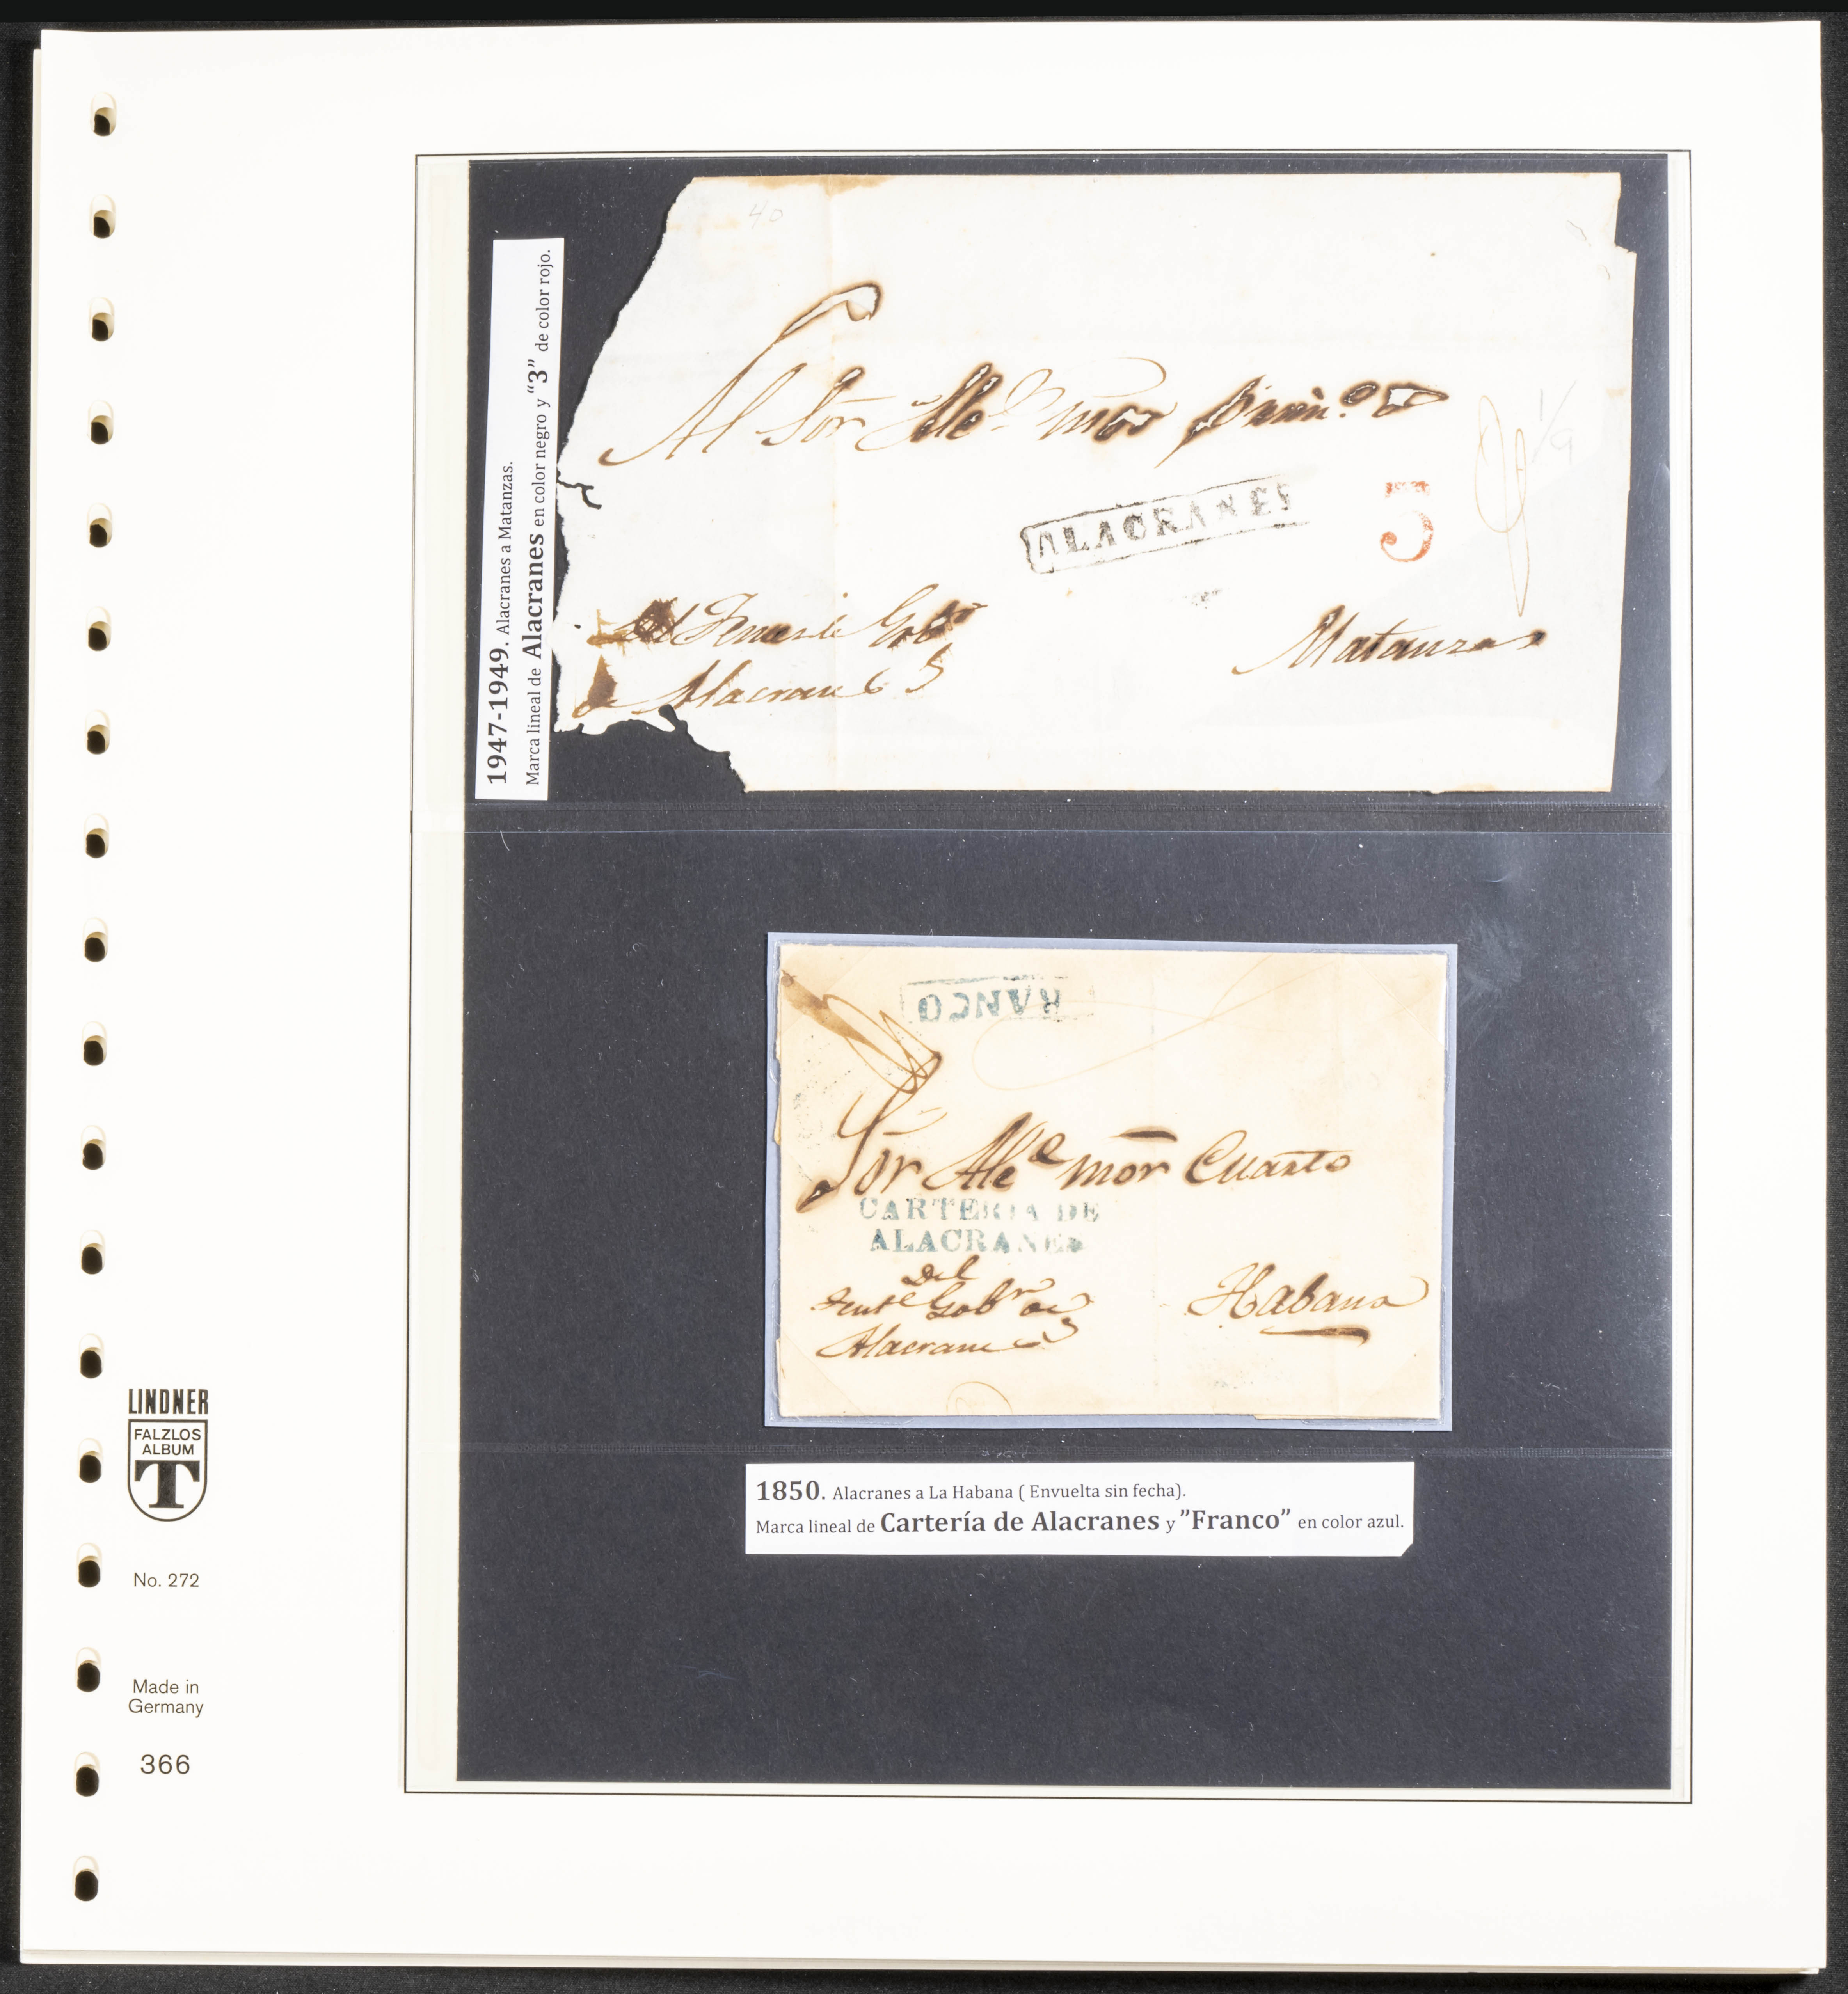 1947-1949. Alacranes a Matanzas.
Marca lineal de Alacranes en color negro y "3" de color rojo.
40
Al Sor Alce mor
ALACRANES
3
Matanzas
Gobor
de Alacranes
RANCO
Sor Alce mor Cuarto
CARTERIA DE
ALACRANES
Del
Tente Gobor de
Alacranes
Habana
1850. Alacranes a La Habana ( Envuelta sin fecha).
Marca lineal de Cartería de Alacranes y ”Franco” en color azul.
LINDNER
FALZLOS
ALBUM
T
No. 272
Made in
Germany
366